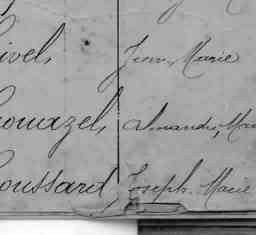 ivel Jean Marie
ouazel Amande, Mar
oussard Joseph Marie